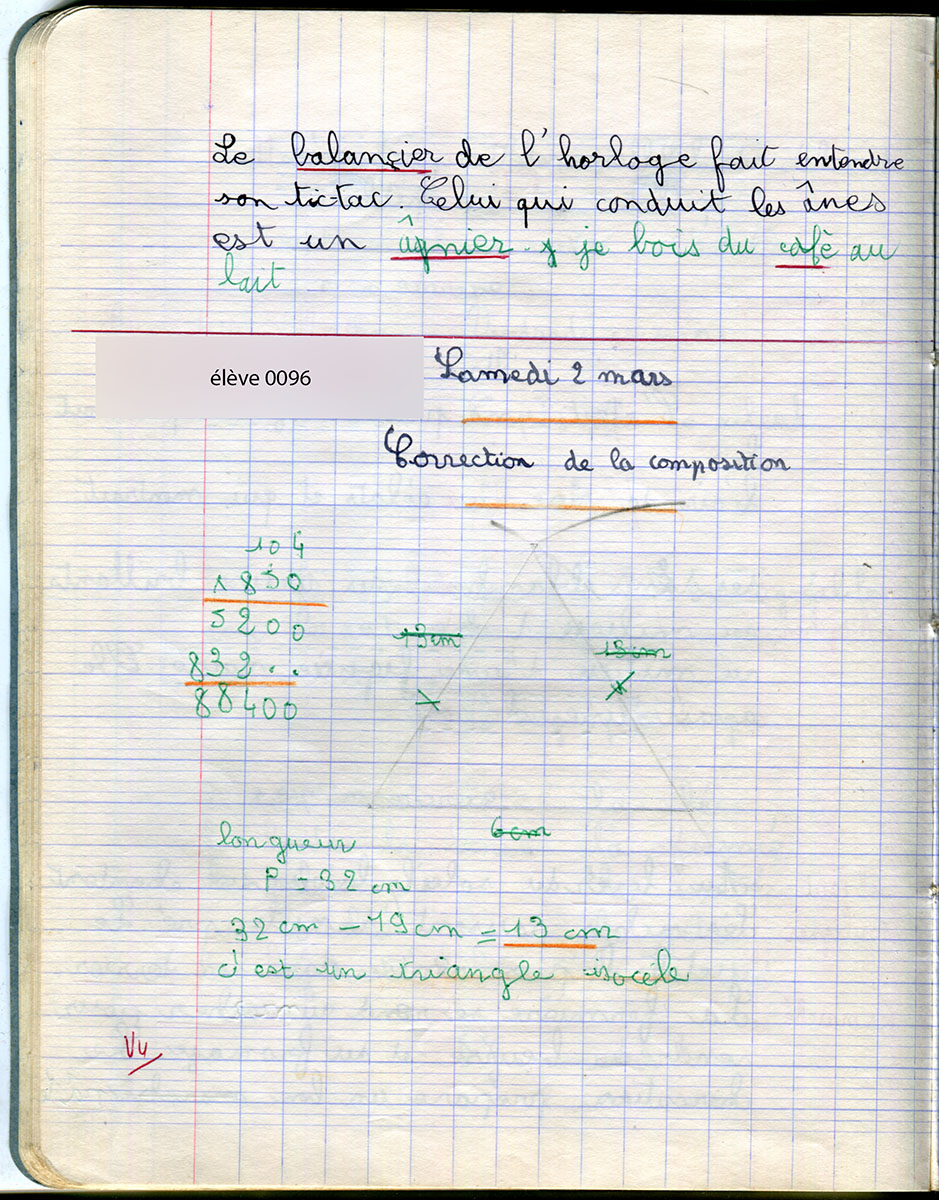 Le balançier de l'horloge fait entendre
son tic-tac. Celui qui conduit les ânes
est un âgnier. je bois du cafè au
lait
élève 0096
Samedi 2 mars
Correction de la composition
104
x 850
5200
832..
88400
13cm
13cm
6cm
longueur
P = 32 cm
32 cm - 19 cm = 13 cm
c'est un triangle isocèle
Vu